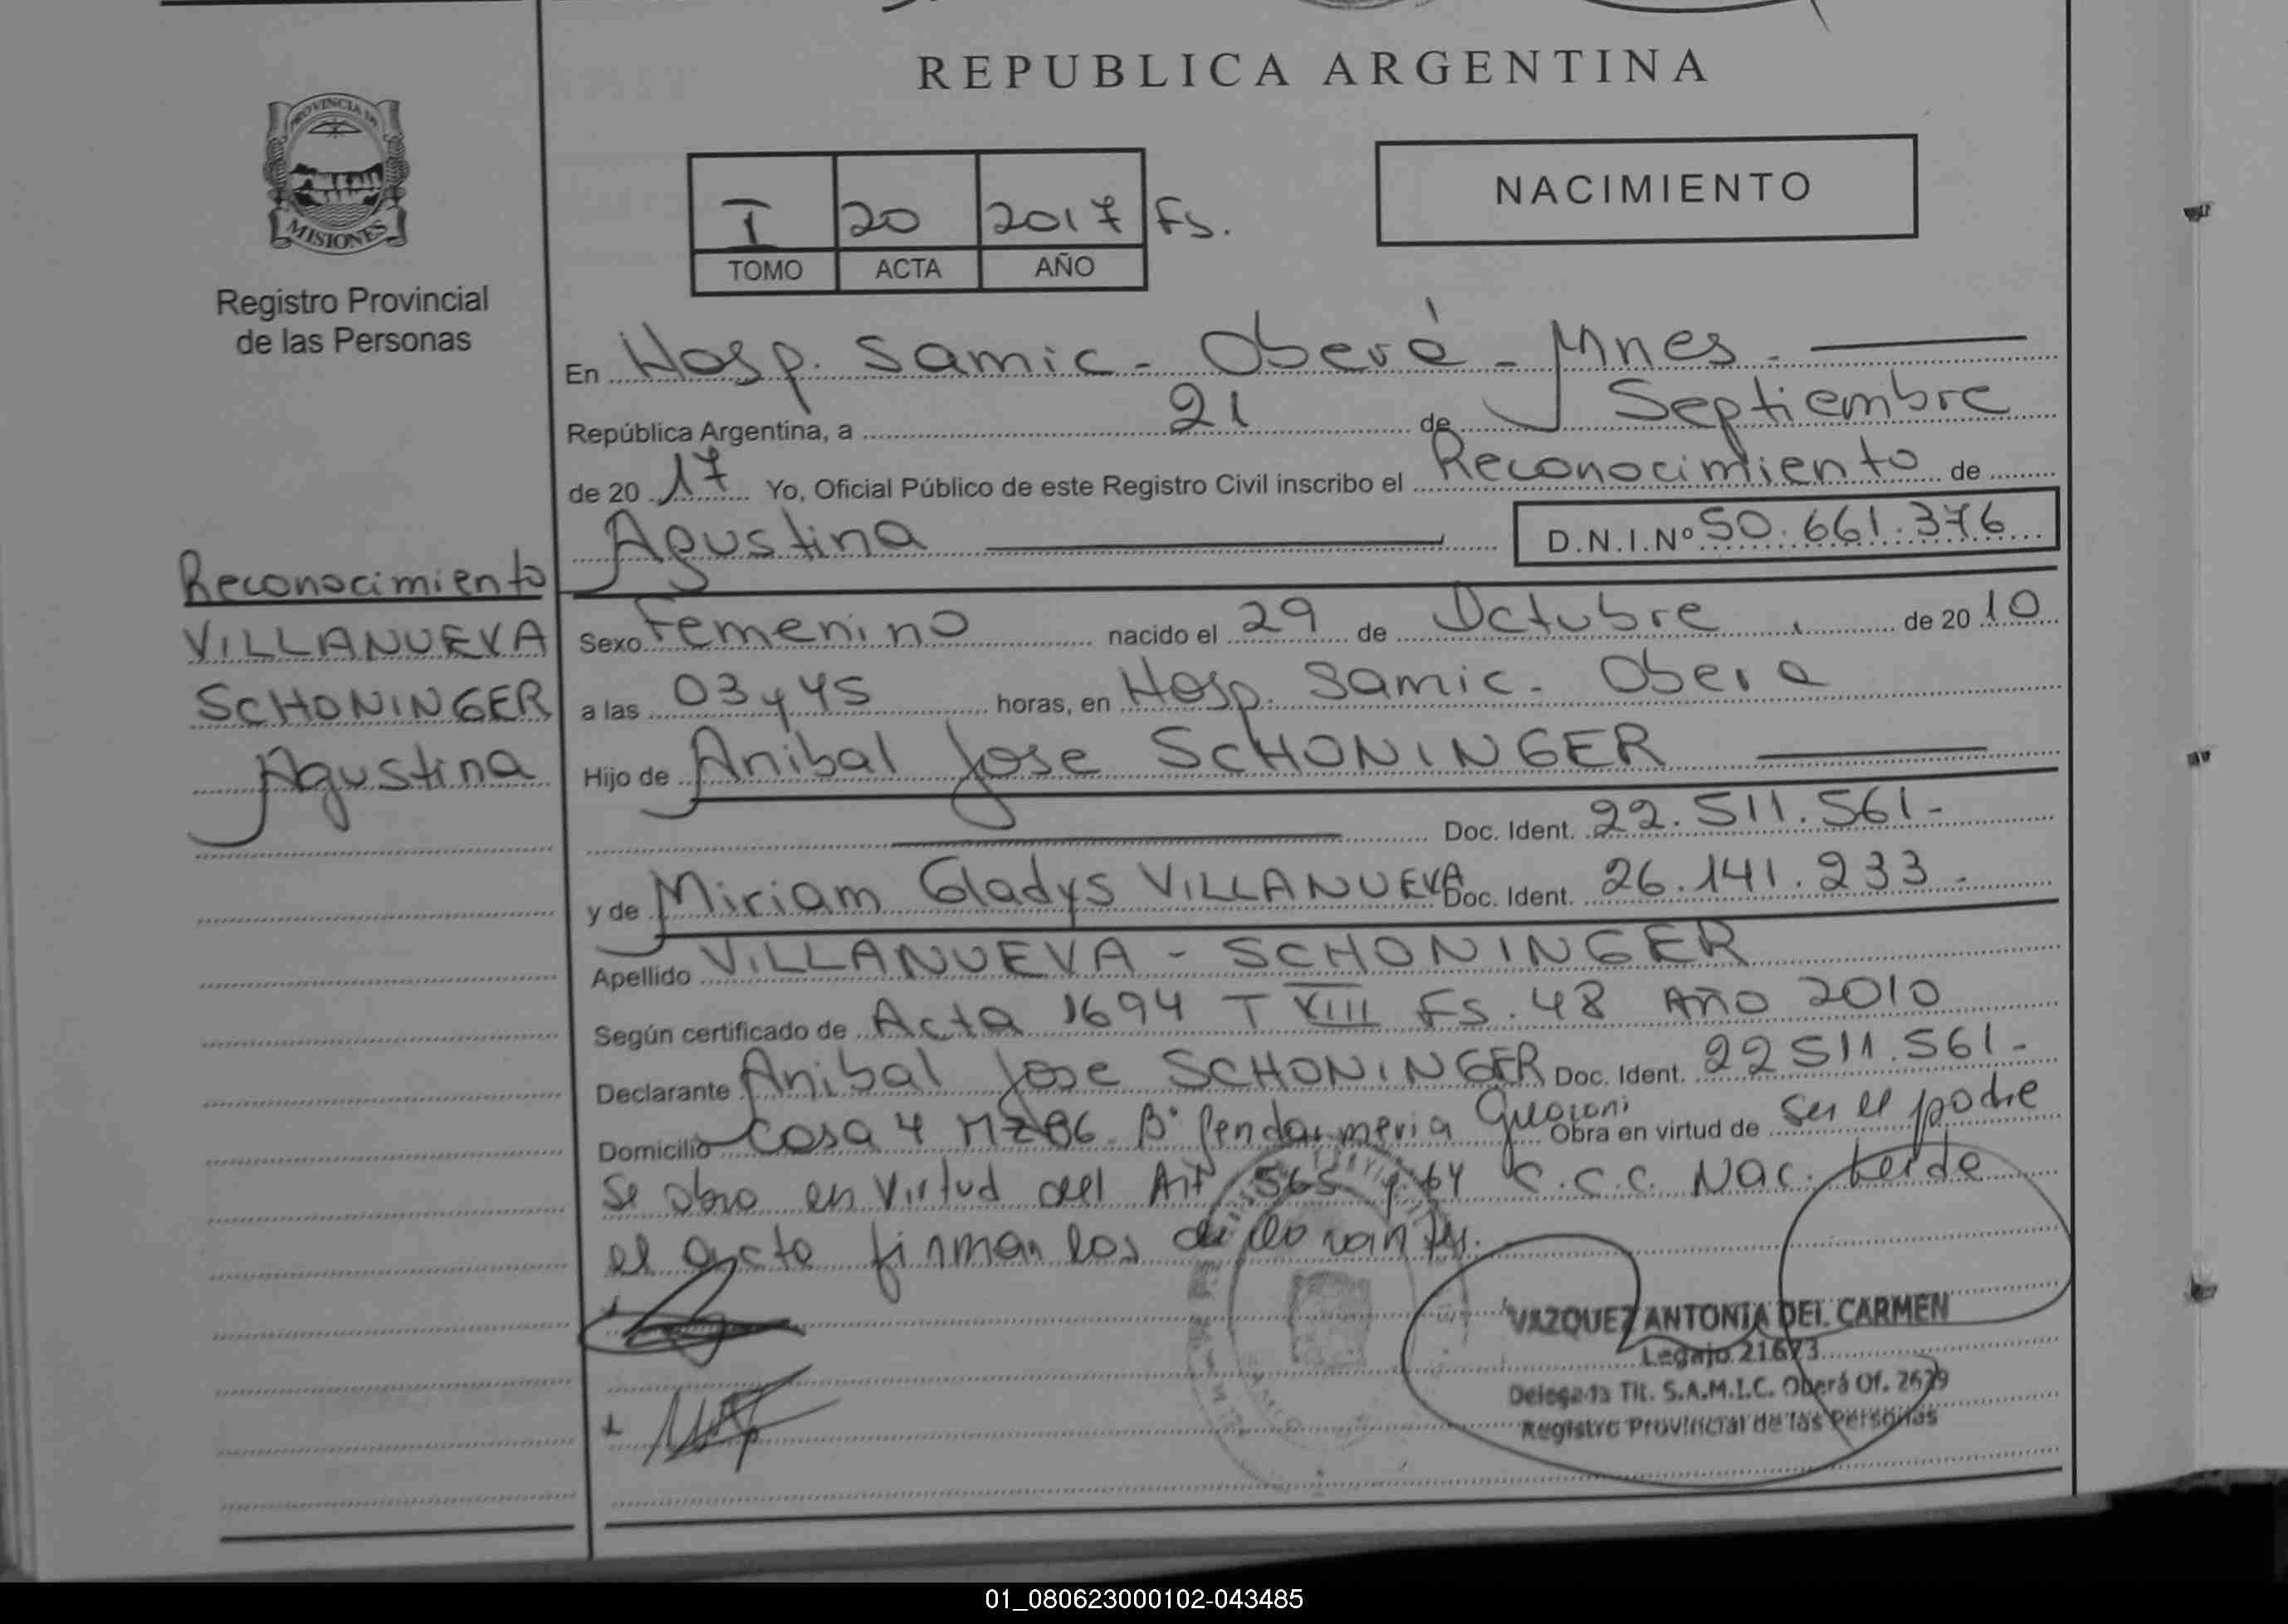 REPUBLICA ARGENTINA
PROVINCIA DE
MISIONES
Registro Provincial
de las Personas
I 20 2017 Fs.
TOMO ACTA AÑO
NACIMIENTO
En Hosp. Samic - Oberá - Mnes -
República Argentina, a 21 de Septiembre
de 20 17 Yo, Oficial Público de este Registro Civil inscribo el Reconocimiento de
Agustina D.N.I.Nº 50.661.376
Reconocimiento
VILLANUEVA
SCHONINGER
Agustina
Sexo Femenino nacido el 29 de Octubre de 20 10
a las 03 y 45 horas, en Hosp. Samic - Obera
Hijo de Anibal Jose SCHONINGER
Doc. Ident. 22.511.561-
y de Miriam Gladys VILLANUEVA Doc. Ident. 26.141.233-
Apellido VILLANUEVA - SCHONINGER
Según certificado de Acta 1694 T XIII Fs. 48 Año 2010
Declarante Anibal Jose SCHONINGER Doc. Ident. 22 511.561-
Domicilio Casa 4 MZ B6 Bº Gendarmeria Obra en virtud de ser el padre
Se obra en virtud del Art 565 C.C.C. Nac. Leida
el acta firman los declarantes.
VAZQUEZ ANTONIA DEL CARMEN
Legajo 21673
Delegada Tit. S.A.M.I.C. Oberá Of. 2629
Registro Provincial de las Personas
01_080623000102-043485